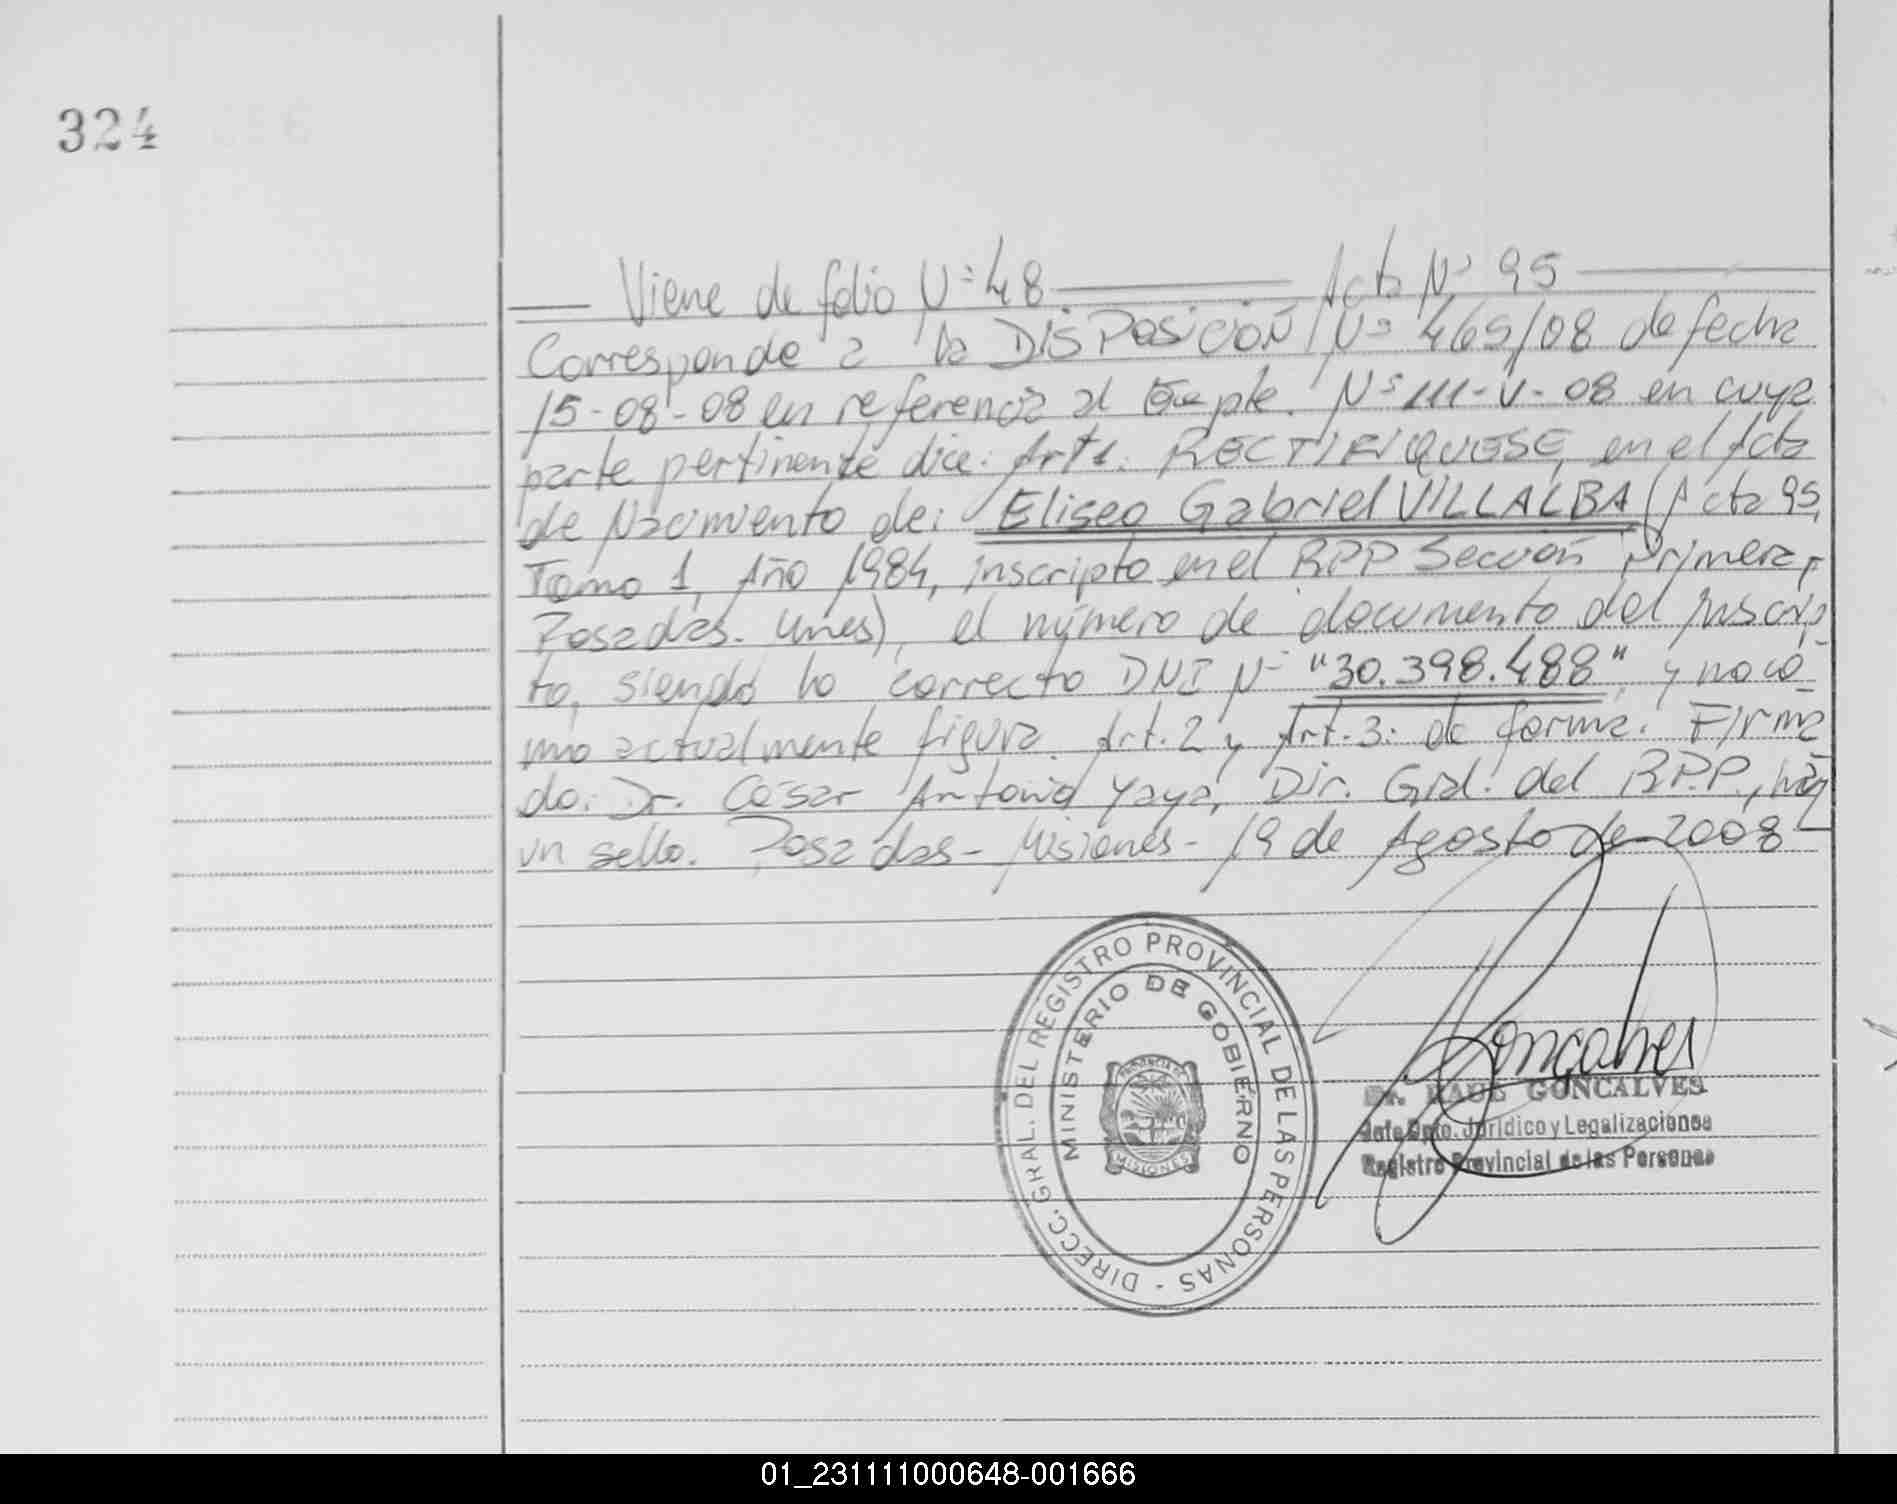 324
— Viene de folio Nº 48 — Acta Nº 95 —
Corresponde a la DISPOSICIÓN Nº 465/08 de fecha
15-08-08 en referencia al Expte. Nº 111-V-08 en cuya
parte pertinente dice: Art 1. RECTIFIQUESE, en el Acta
de Nacimiento de: Eliseo Gabriel VILLALBA (Acta 95,
Tomo 1, Año 1984, inscripto en el RPP Sección Primera,
Posadas. Mnes), el número de documento del Inscrip
to, siendo lo correcto DNI Nº "30.398.488", y no có-
mo actualmente figura. Art. 2 y Art. 3: de forma. Firma
do: Dr. César Antonio Yaya, Dir. Gral. del R.P.P., hay
un sello. Posadas - Misiones - 19 de Agosto de 2008
DIRECC. GRAL. DEL REGISTRO PROVINCIAL DE LAS PERSONAS -
MINISTERIO DE GOBIERNO
PROVINCIA DE
MISIONES
Goncalves
Dr. RAUL GONCALVES
Jefe Dpto. Jurídico y Legalizaciones
Registro Provincial de las Personas
01_231111000648-001666